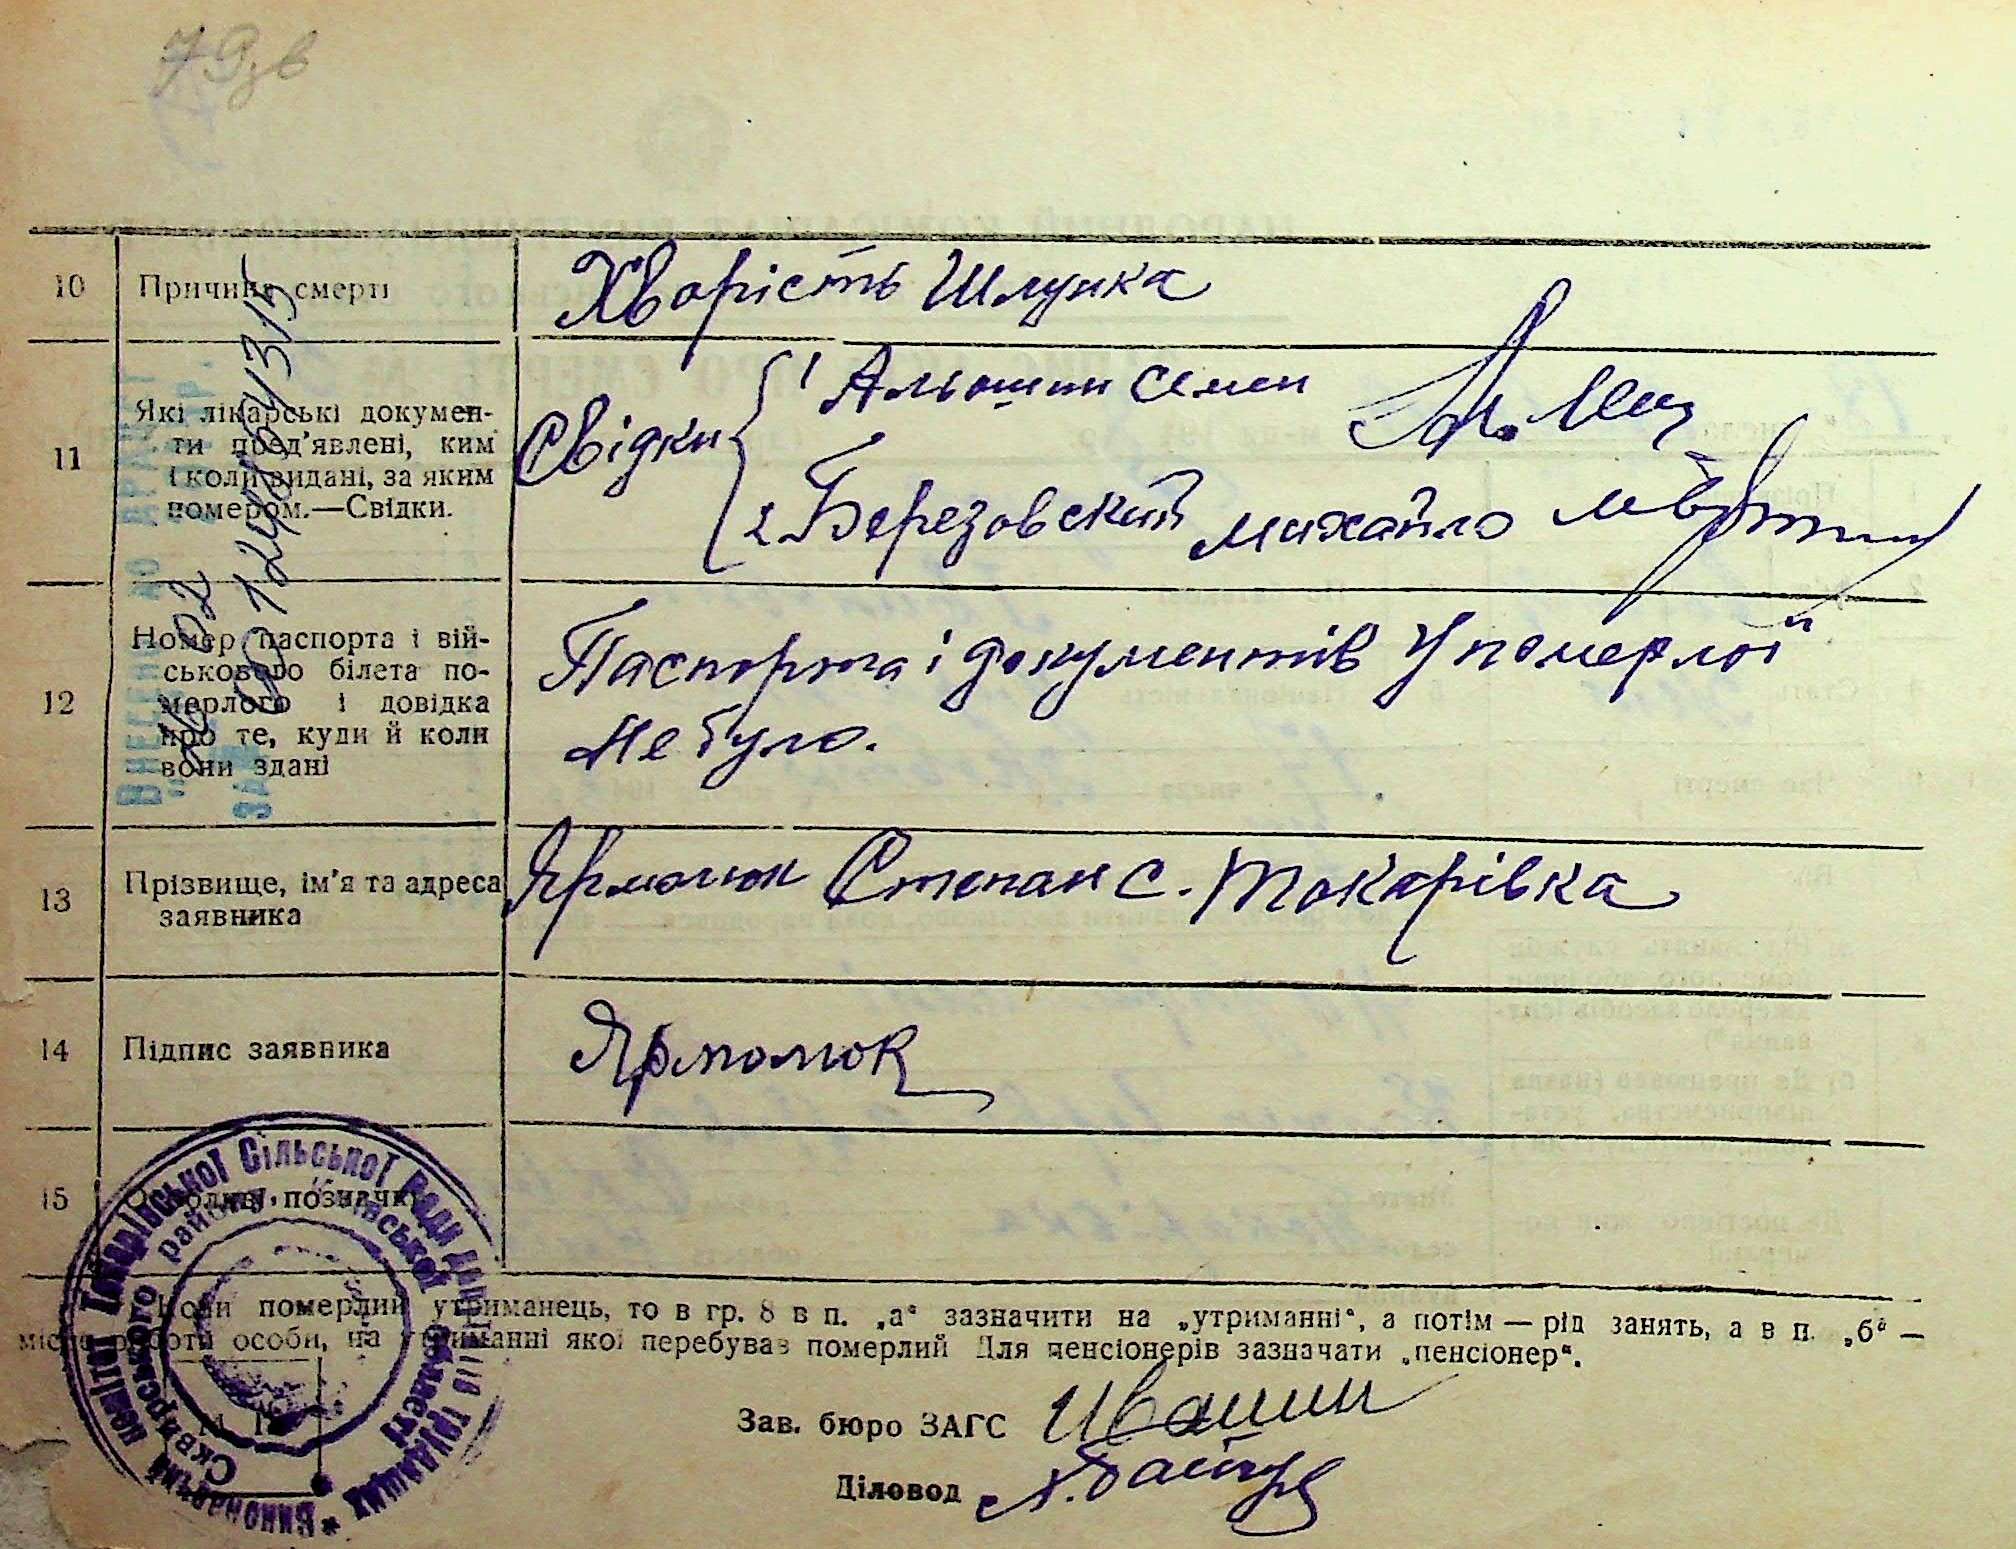 79зв
10 Причина смерті Хворість Шлунка
11 Які лікарські докумен-
ти пред'явлені, ким
і коли видані, за яким
номером.—Свідки.
Свідки
1 Альошин Семен
2 Березовский михайло
12 Номер паспорта і вій-
ськового білета по-
мерлого і довідка
про те, куди й коли
вони здані
Паспорта і документів У померлої
Не було.
13 Прізвище, ім'я та адреса
заявника
Ярмолюк Степан с. Токарівка
14 Підпис заявника Ярмолюк
15 Особливі позначки
Коли померлий утриманець, то в гр. 8 в п. „а“ зазначити на „утриманні“, а потім — рід занять, а в п. „б“ —
місце роботи особи, на утриманні якої перебував померлий Для пенсіонерів зазначати „пенсіонер“.
Зав. бюро ЗАГС Ивашин
Діловод
Виконавчий Комітет Токарівської Сільської Ради Депутатів Трудящих
Сквирського району, Київської області